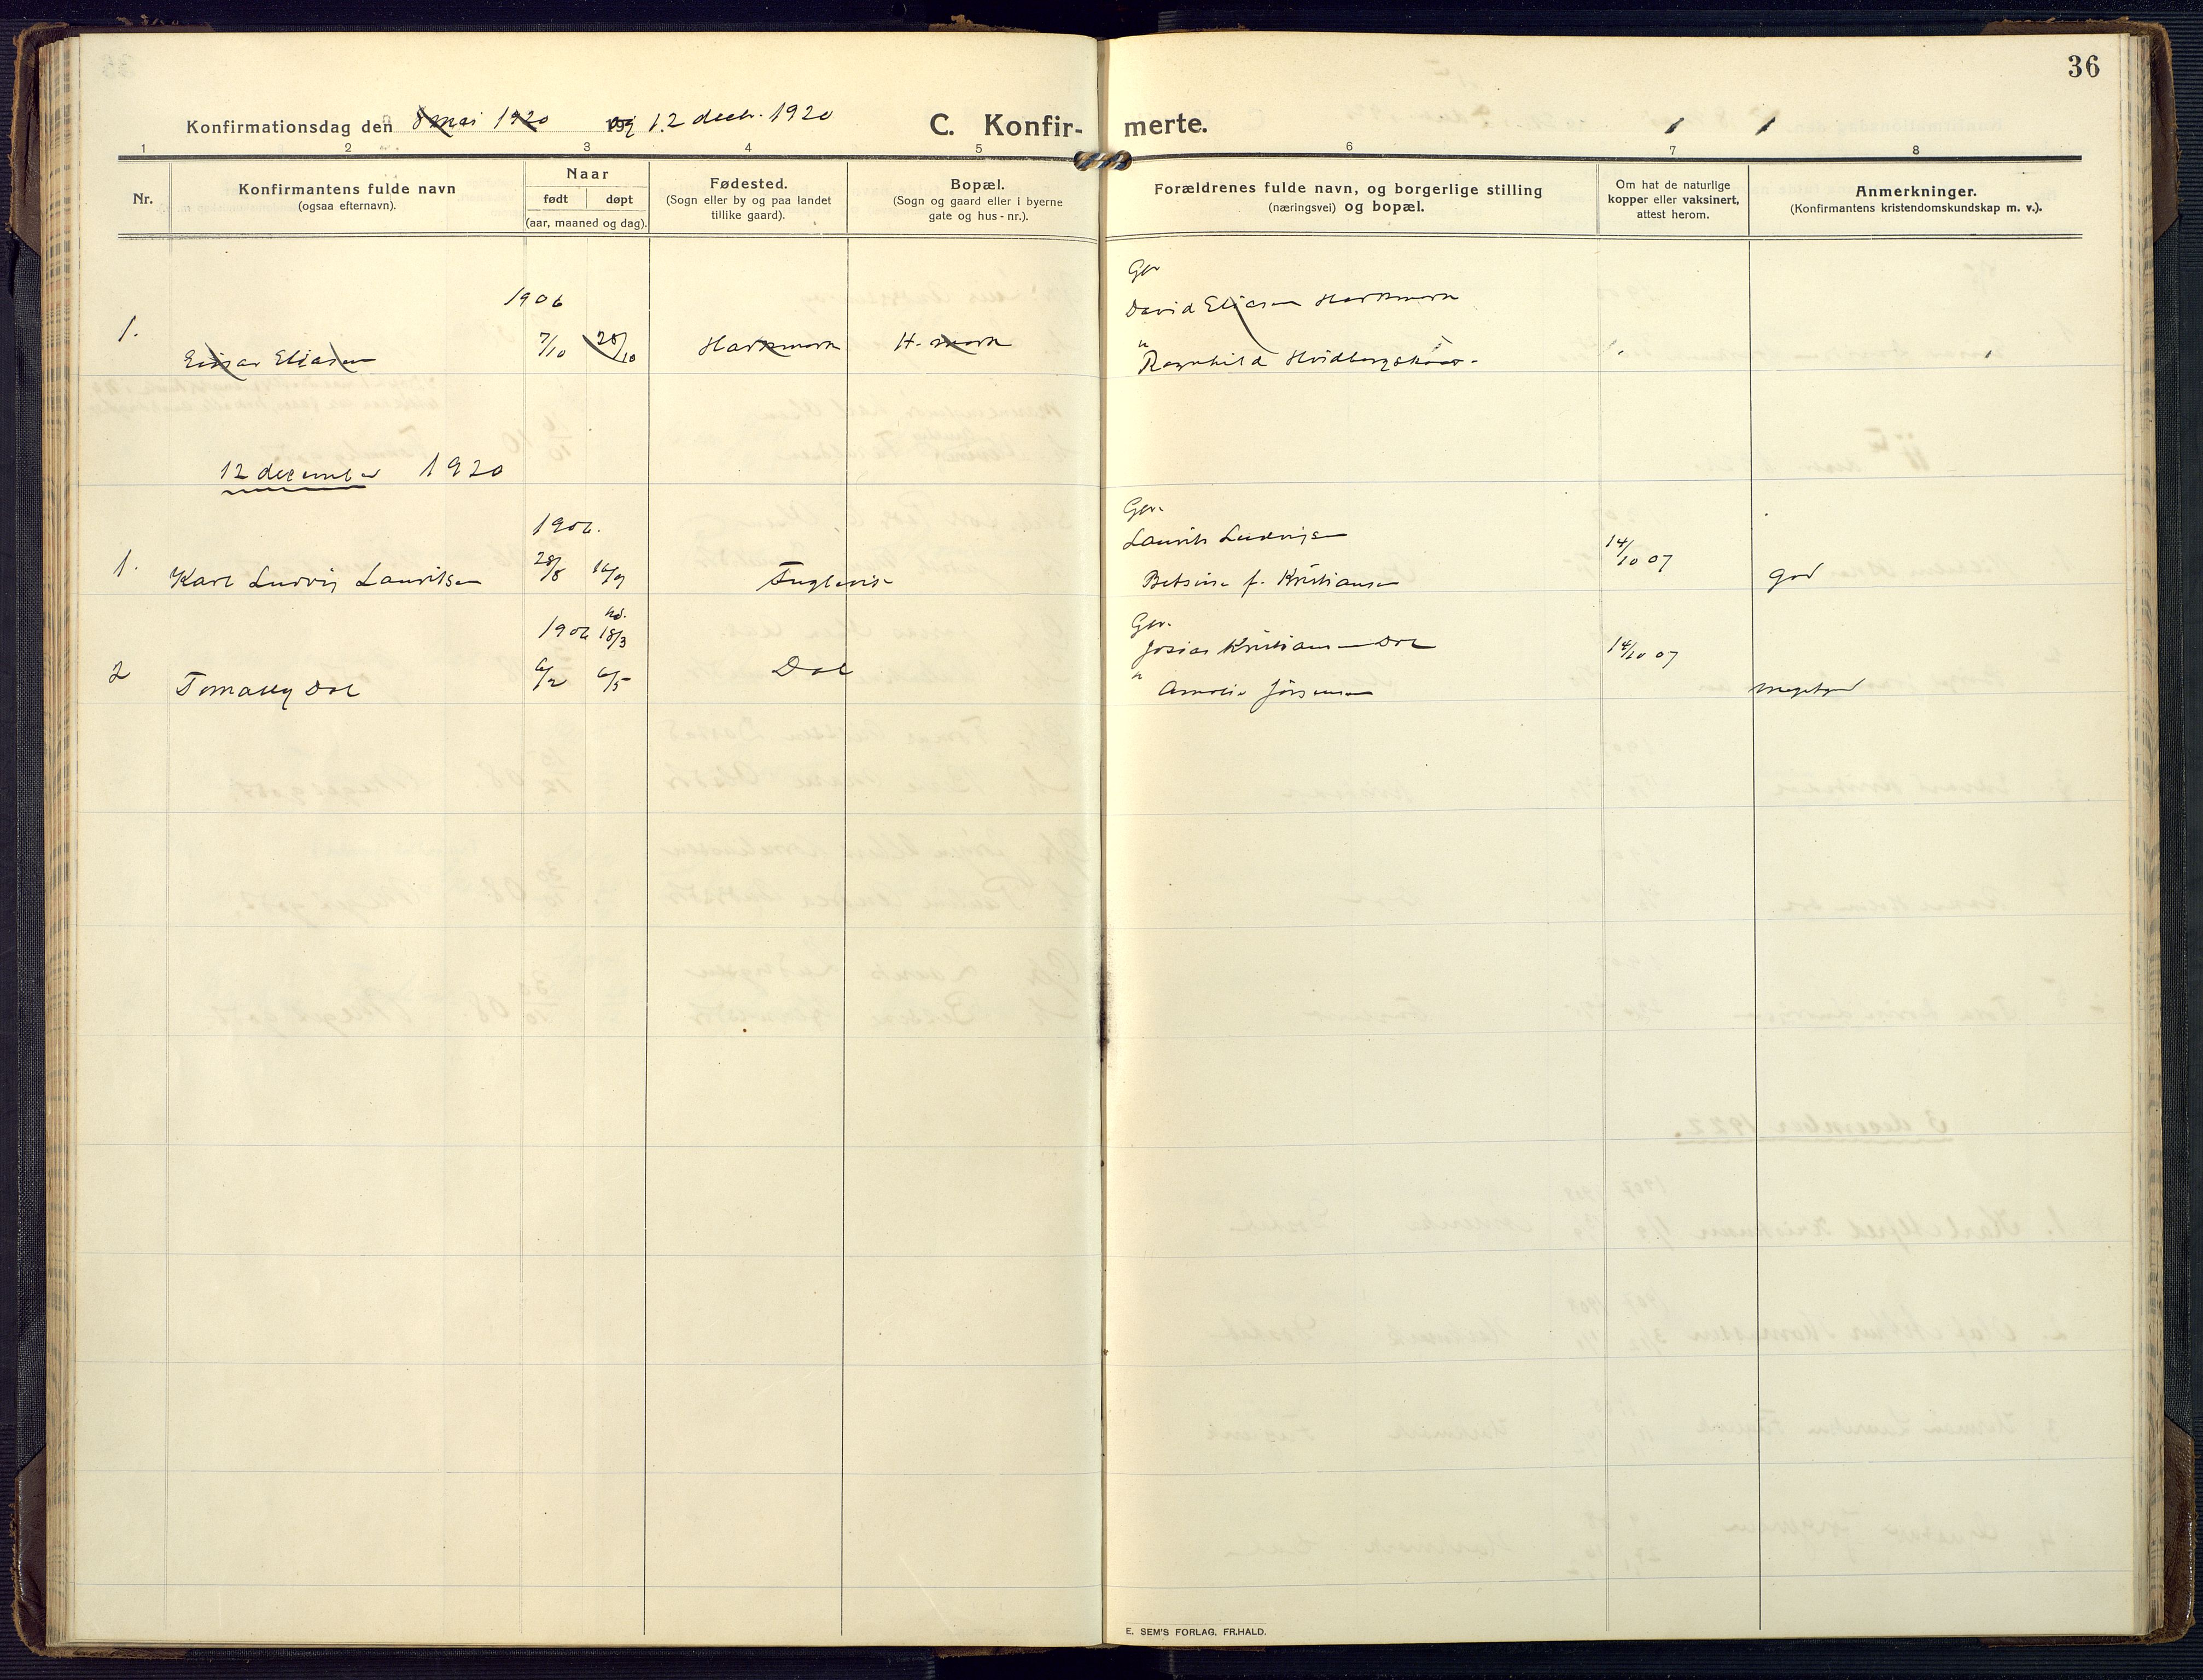 36
Konfirmationsdag den 8 mai 1920 og 12 decbr. 1920
C. Konfirmerte.
1 2 3 4 5 6 7 8
Nr.
Konfirmantens fulde navn
(ogsaa efternavn).
Naar
født døpt
(aar, maaned og dag).
Fødested.
(Sogn eller by og paa landet
tillike gaard).
Bopæl.
(Sogn og gaard eller i byerne
gate og hus-nr.).
Forældrenes fulde navn, og borgerlige stilling
(næringsvei) og bopæl.
Om hat de naturlige
kopper eller vaksinert,
attest herom.
Anmerkninger.
(Konfirmantens kristendomskundskap m. v.).
Gbr
1906 David Eliasen Harkmark
1. Einar Eliasen 7/10 28/10 Harkmark H-mark " Ragnhild Hvidbergskaar
12 december 1920
Gbr.
1906. Laurits Ludvigsen
1. Karl Ludvig Lauritsen 28/8 16/9 Fuglevik Betsine f. Kristiansen 14/10 07 god
Gbr.
1906 18/3 Josias Kristiansen Dol
2 Tomassy Dol 6/2 6/5 Dol " Amalie Jörgensen 14/10 07 meget god
E. SEM'S FORLAG, FR.HALD.